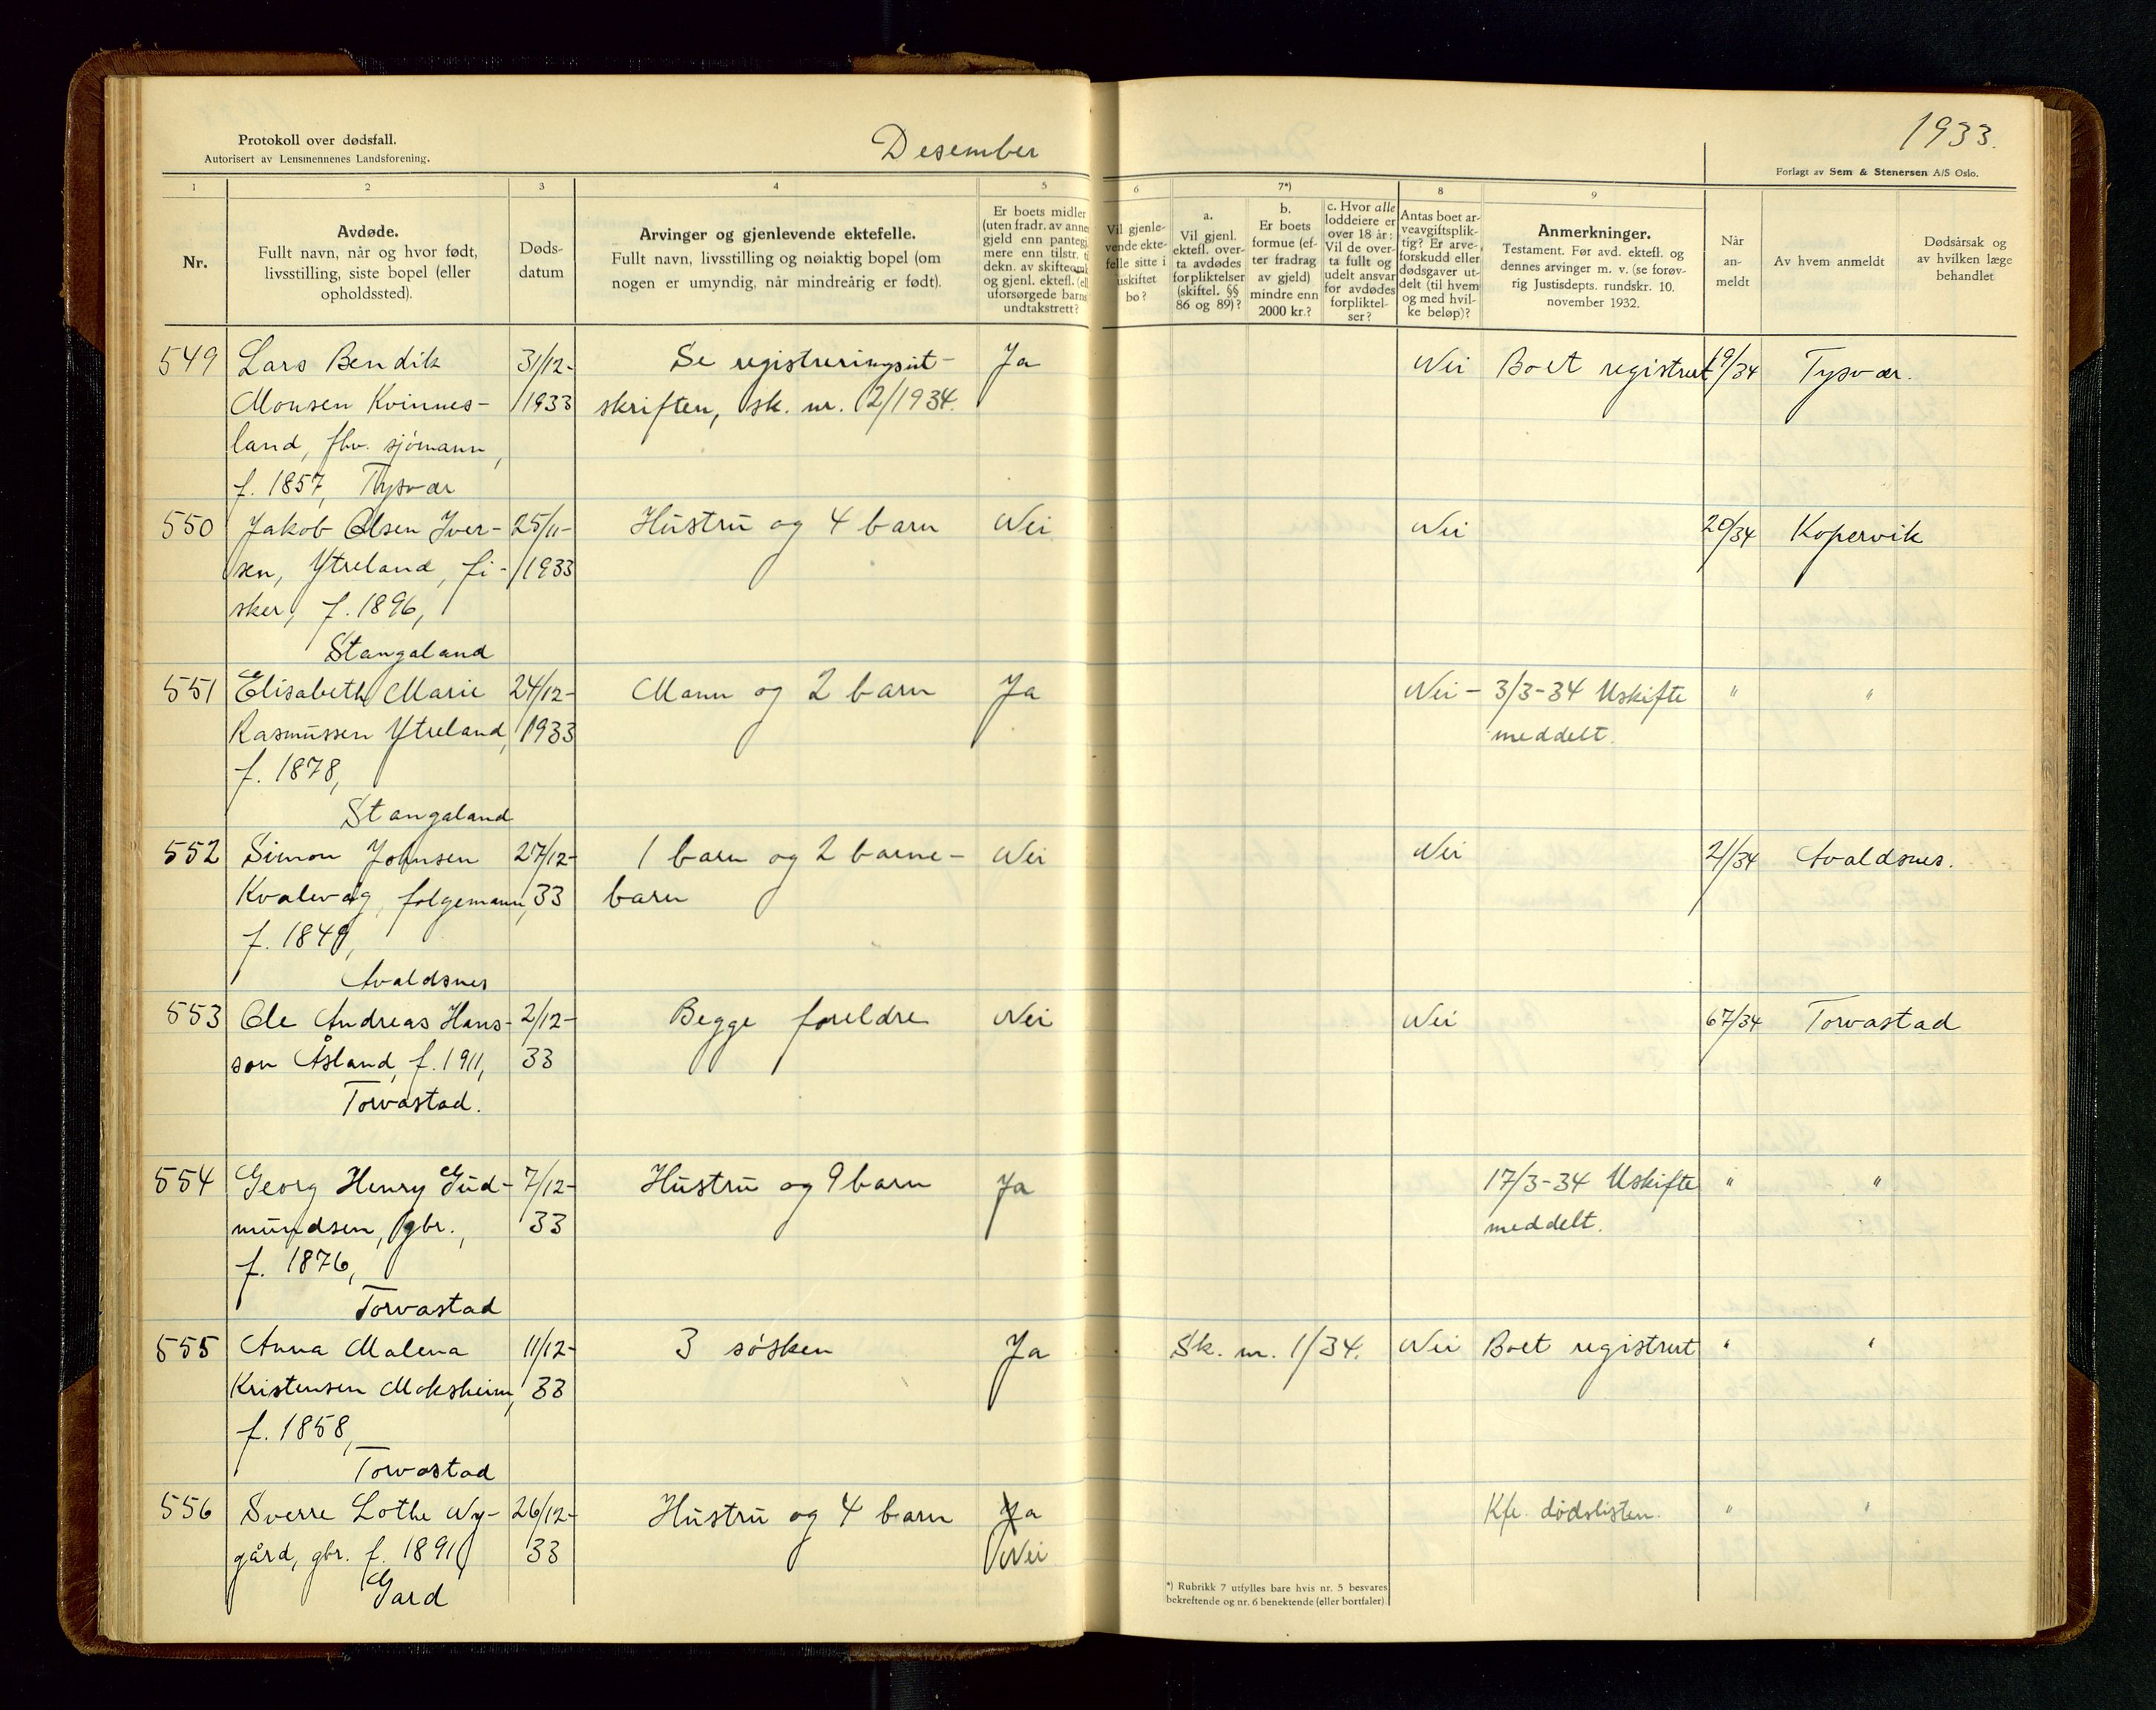 Protokoll over dødsfall.
Autorisert av Lensmennenes Landsforening.
Desember
1933.
Forlagt av Sem & Stenersen A/S Oslo.
1 2 3 4 5 6 7*) 8 9
Nr.
Avdøde.
Fullt navn, når og hvor født,
livsstilling, siste bopel (eller
opholdssted).
Døds-
datum
Arvinger og gjenlevende ektefelle.
Fullt navn, livsstilling og nøiaktig bopel (om
nogen er umyndig, når mindreårig er født).
Er boets midler
(uten fradr. av annen
gjeld enn pantegj.
mere enn tilstr. ti
dekn. av skifteomk
og gjenl. ektefl. (ell
uforsørgede barns
undtakstrett?
Vil gjenle-
vende ekte-
felle sitte i
uskiftet
bo?
a.
Vil gjenl.
ektefl. over-
ta avdødes
forpliktelser
(skiftel. §§
86 og 89)?
b.
Er boets
formue (ef-
ter fradrag
av gjeld)
mindre enn
2000 kr.?
c. Hvor alle
loddeiere er
over 18 år:
Vil de over-
ta fullt og
udelt ansvar
for avdødes
forpliktel-
ser?
Antas boet ar-
veavgiftsplik-
tig? Er arve-
forskudd eller
dødsgaver ut-
delt (til hvem
og med hvil-
ke beløp)?
Anmerkninger.
Testament. Før avd. ektefl. og
dennes arvinger m. v. (se forøv-
rig Justisdepts. rundskr. 10.
november 1932.
Når
an-
meldt
Av hvem anmeldt
Dødsårsak og
av hvilken læge
behandlet
549 Lars Bendik 31/12- Se registreringsut- Ja Nei Boet registrert 19/34 Tysvær.
Monsen Kvinnes- 1933 skriften, sk. nr. 2/1934.
land, fhv. sjømann,
f. 1857, Tysvær
550 Jakob Olsen Iver- 25/11- Hustru og 4 barn Nei Nei 20/34 Kopervik
sen, Ytreland, fi- 1933
sker, f. 1896,
Stangaland
551 Elisabeth Marie 24/12- Mann og 2 barn Ja Nei - 3/3-34 Uskifte " "
Rasmussen Ytreland, 1933 meddelt.
f. 1878,
Stangaland
552 Simon Johnsen 27/12- 1 barn og 2 barne- Nei Nei 21/34 Avaldsnes.
Kvalevåg, folgemann, 33 barn
f. 1849,
Avaldsnes
553 Ole Andreas Hans- 2/12- Begge foreldre Nei Nei 67/34 Torvastad
son Åsland, f. 1911, 33
Torvastad.
554 Georg Henry Gud- 7/12- Hustru og 9 barn Ja 17/3-34 Uskifte " "
mundsen, gbr., 33 meddelt.
f. 1876,
Torvastad
555 Anna Malena 11/12- 3 søsken Ja Sk. nr. 1/34. Nei Boet registrert " "
Kristensen Moksheim, 33
f. 1858,
Torvastad
556 Sverre Lothe Ny- 26/12- Hustru og 4 barn Ja Kfr. dødslisten. " "
gård, gbr. f. 1891, 33 Nei
Gard
*) Rubrikk 7 utfylles bare hvis nr. 5 besvares
bekreftende og nr. 6 benektende (eller bortfaler).